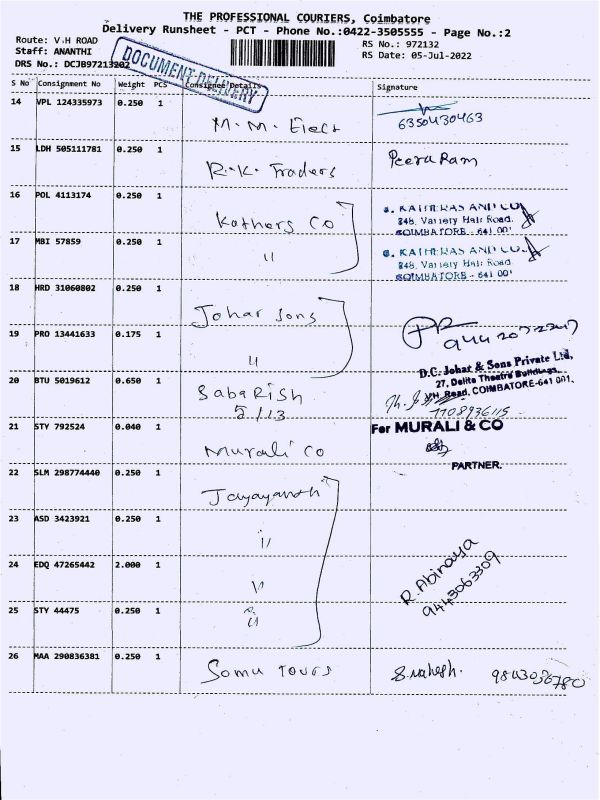 THE PROFESSIONAL COURIERS, Coimbatore
Delivery Runsheet - PCT - Phone No.:0422-3505555 - Page No.:2
Route: V.H ROAD
Staff: ANANTHI
DRS No.: DCJB97213202
RS No.: 972132
RS Date: 05-Jul-2022
DOCUMENT DELIVERY
S No Consignment No Weight PCS Consignee Details Signature
14 VPL 124335973 0.250 1
M.M. Elect
6350430463
15 LDH 505111781 0.250 1
R.K. Traders
Peera Ram
16 POL 4113174 0.250 1
Kathers Co
848, Variety Hall Road,
COIMBATORE - 641 001
17 MBI 57859 0.250 1
"
848, Variety Hall Road
COIMBATORE - 641 001
18 HRD 31060802 0.250 1
Johar sons
19 PRO 13441633 0.175 1
"
D.C. Johar & Sons Private Ltd,
27, Delite Theatre Buildings,
VH. Road, COIMBATORE-641 001.
20 BTU 5019612 0.650 1
SabaRish
5/13
21 STY 792524 0.040 1
Murali Co
For MURALI & CO
PARTNER.
22 SLM 298774440 0.250 1
Jayayanth
23 ASD 3423921 0.250 1
"
24 EDQ 47265442 2.000 1
"
R. Abinaya
9443063309
25 STY 44475 0.250 1
"
26 MAA 290836381 0.250 1
Somu Tours